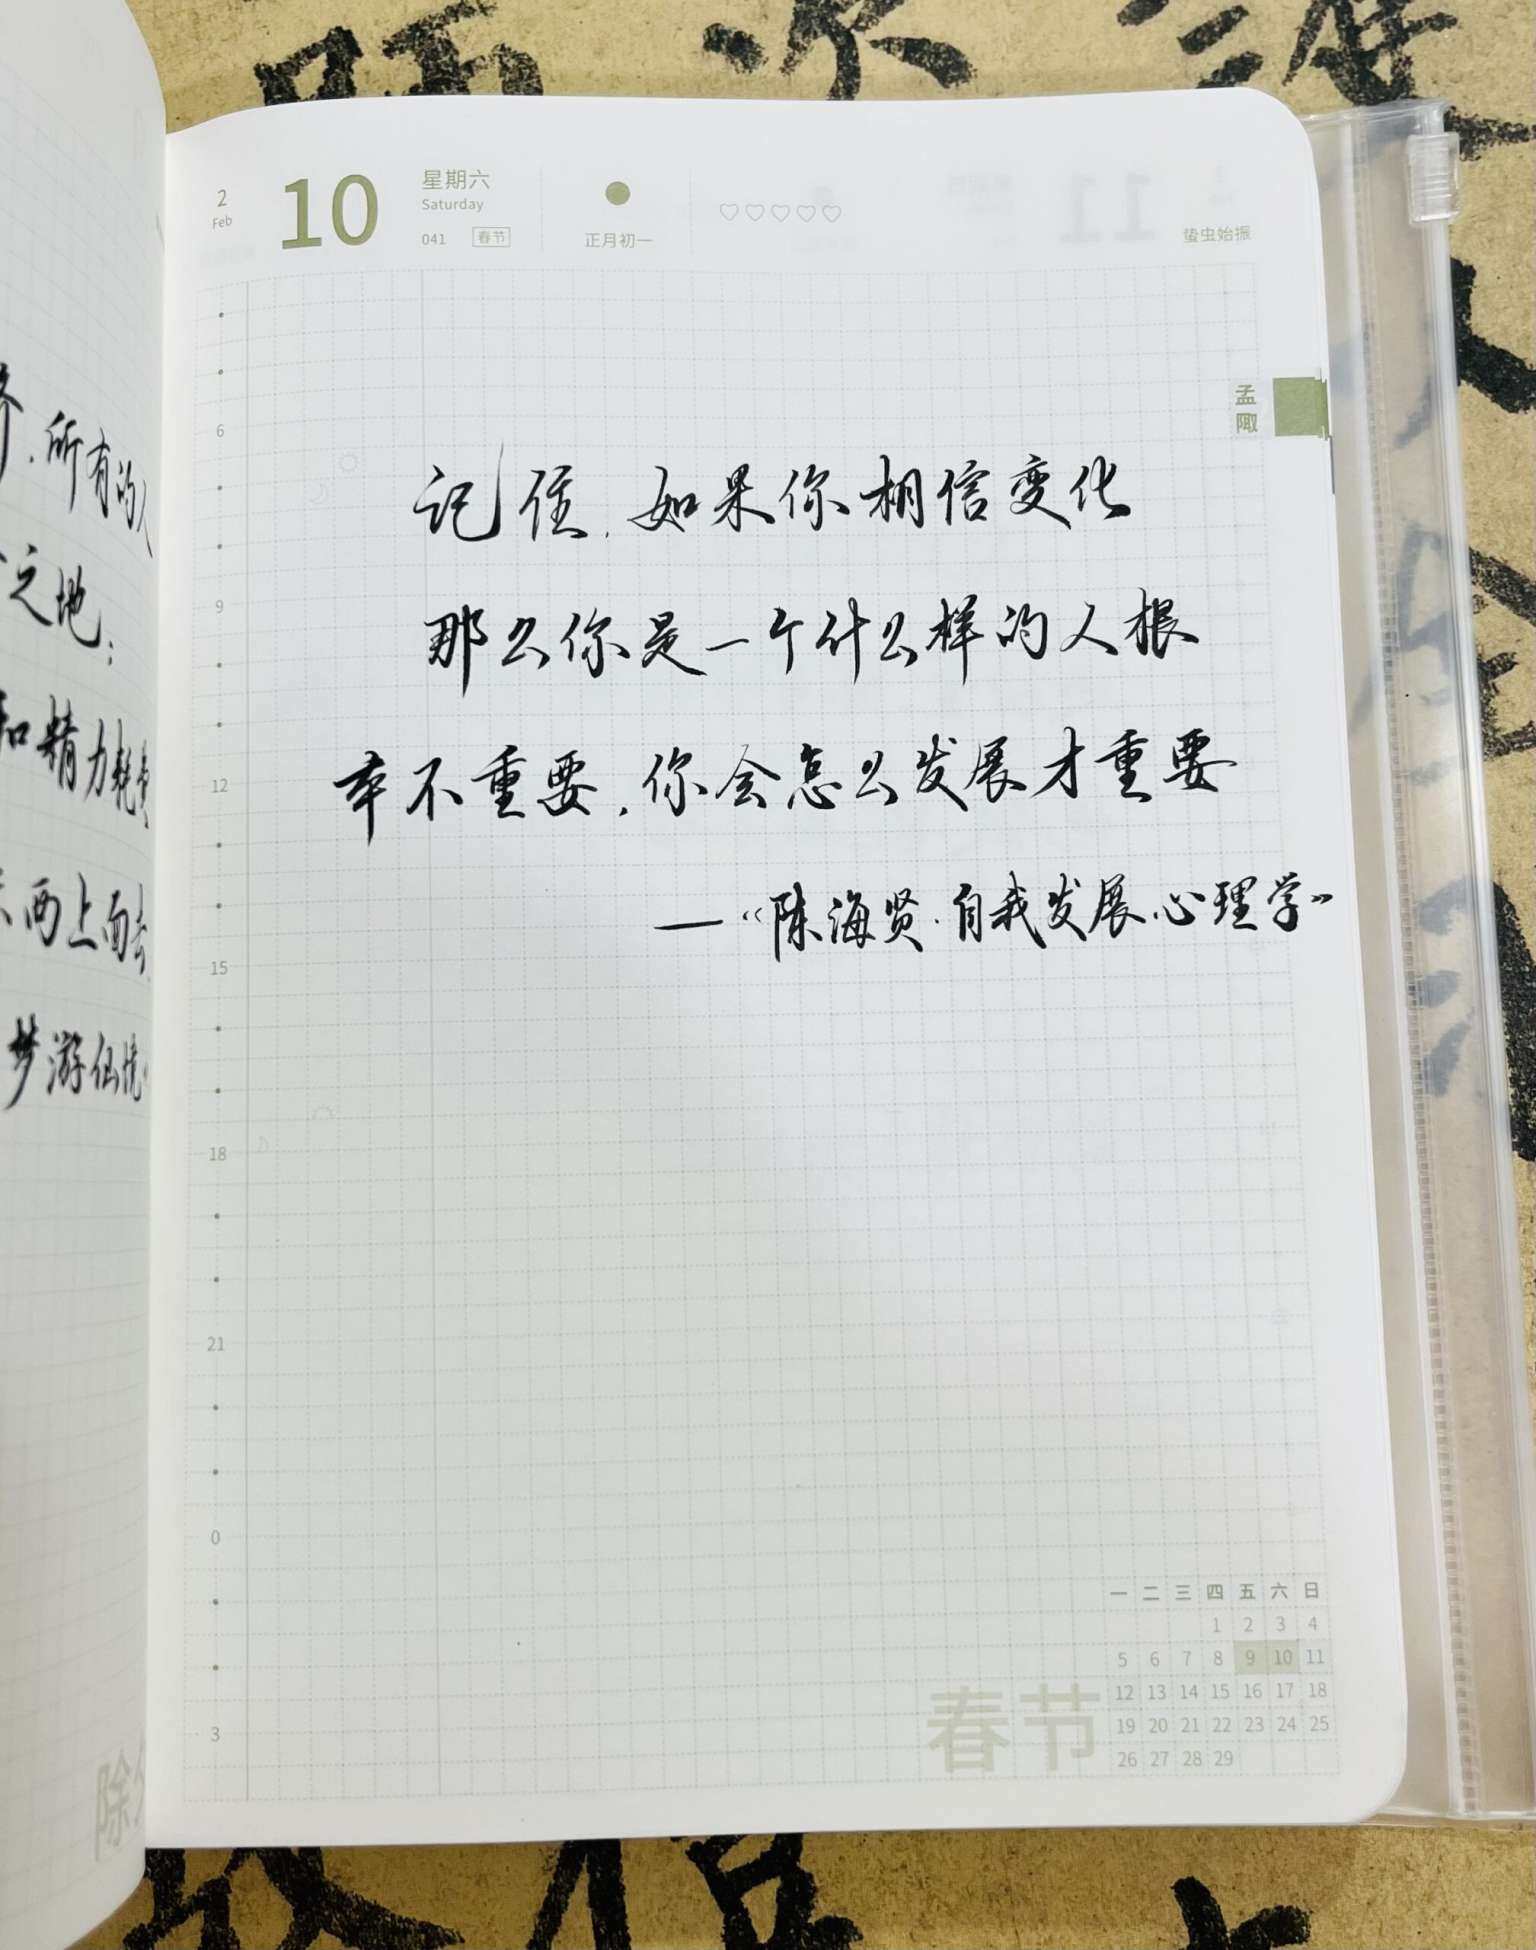 2
Feb
10
星期六
Saturday
041 春节
正月初一
蛰虫始振
孟
陬
记住,如果你相信变化
那么你是一个什么样的人根
本不重要,你会怎么发展才重要
—“陈海贤·自我发展心理学”
6
9
12
15
18
21
0
3
所有的人
之地:
和精力耗费
西上面去
梦游仙境
除
春节
一 二 三 四 五 六 日
1 2 3 4
5 6 7 8 9 10 11
12 13 14 15 16 17 18
19 20 21 22 23 24 25
26 27 28 29